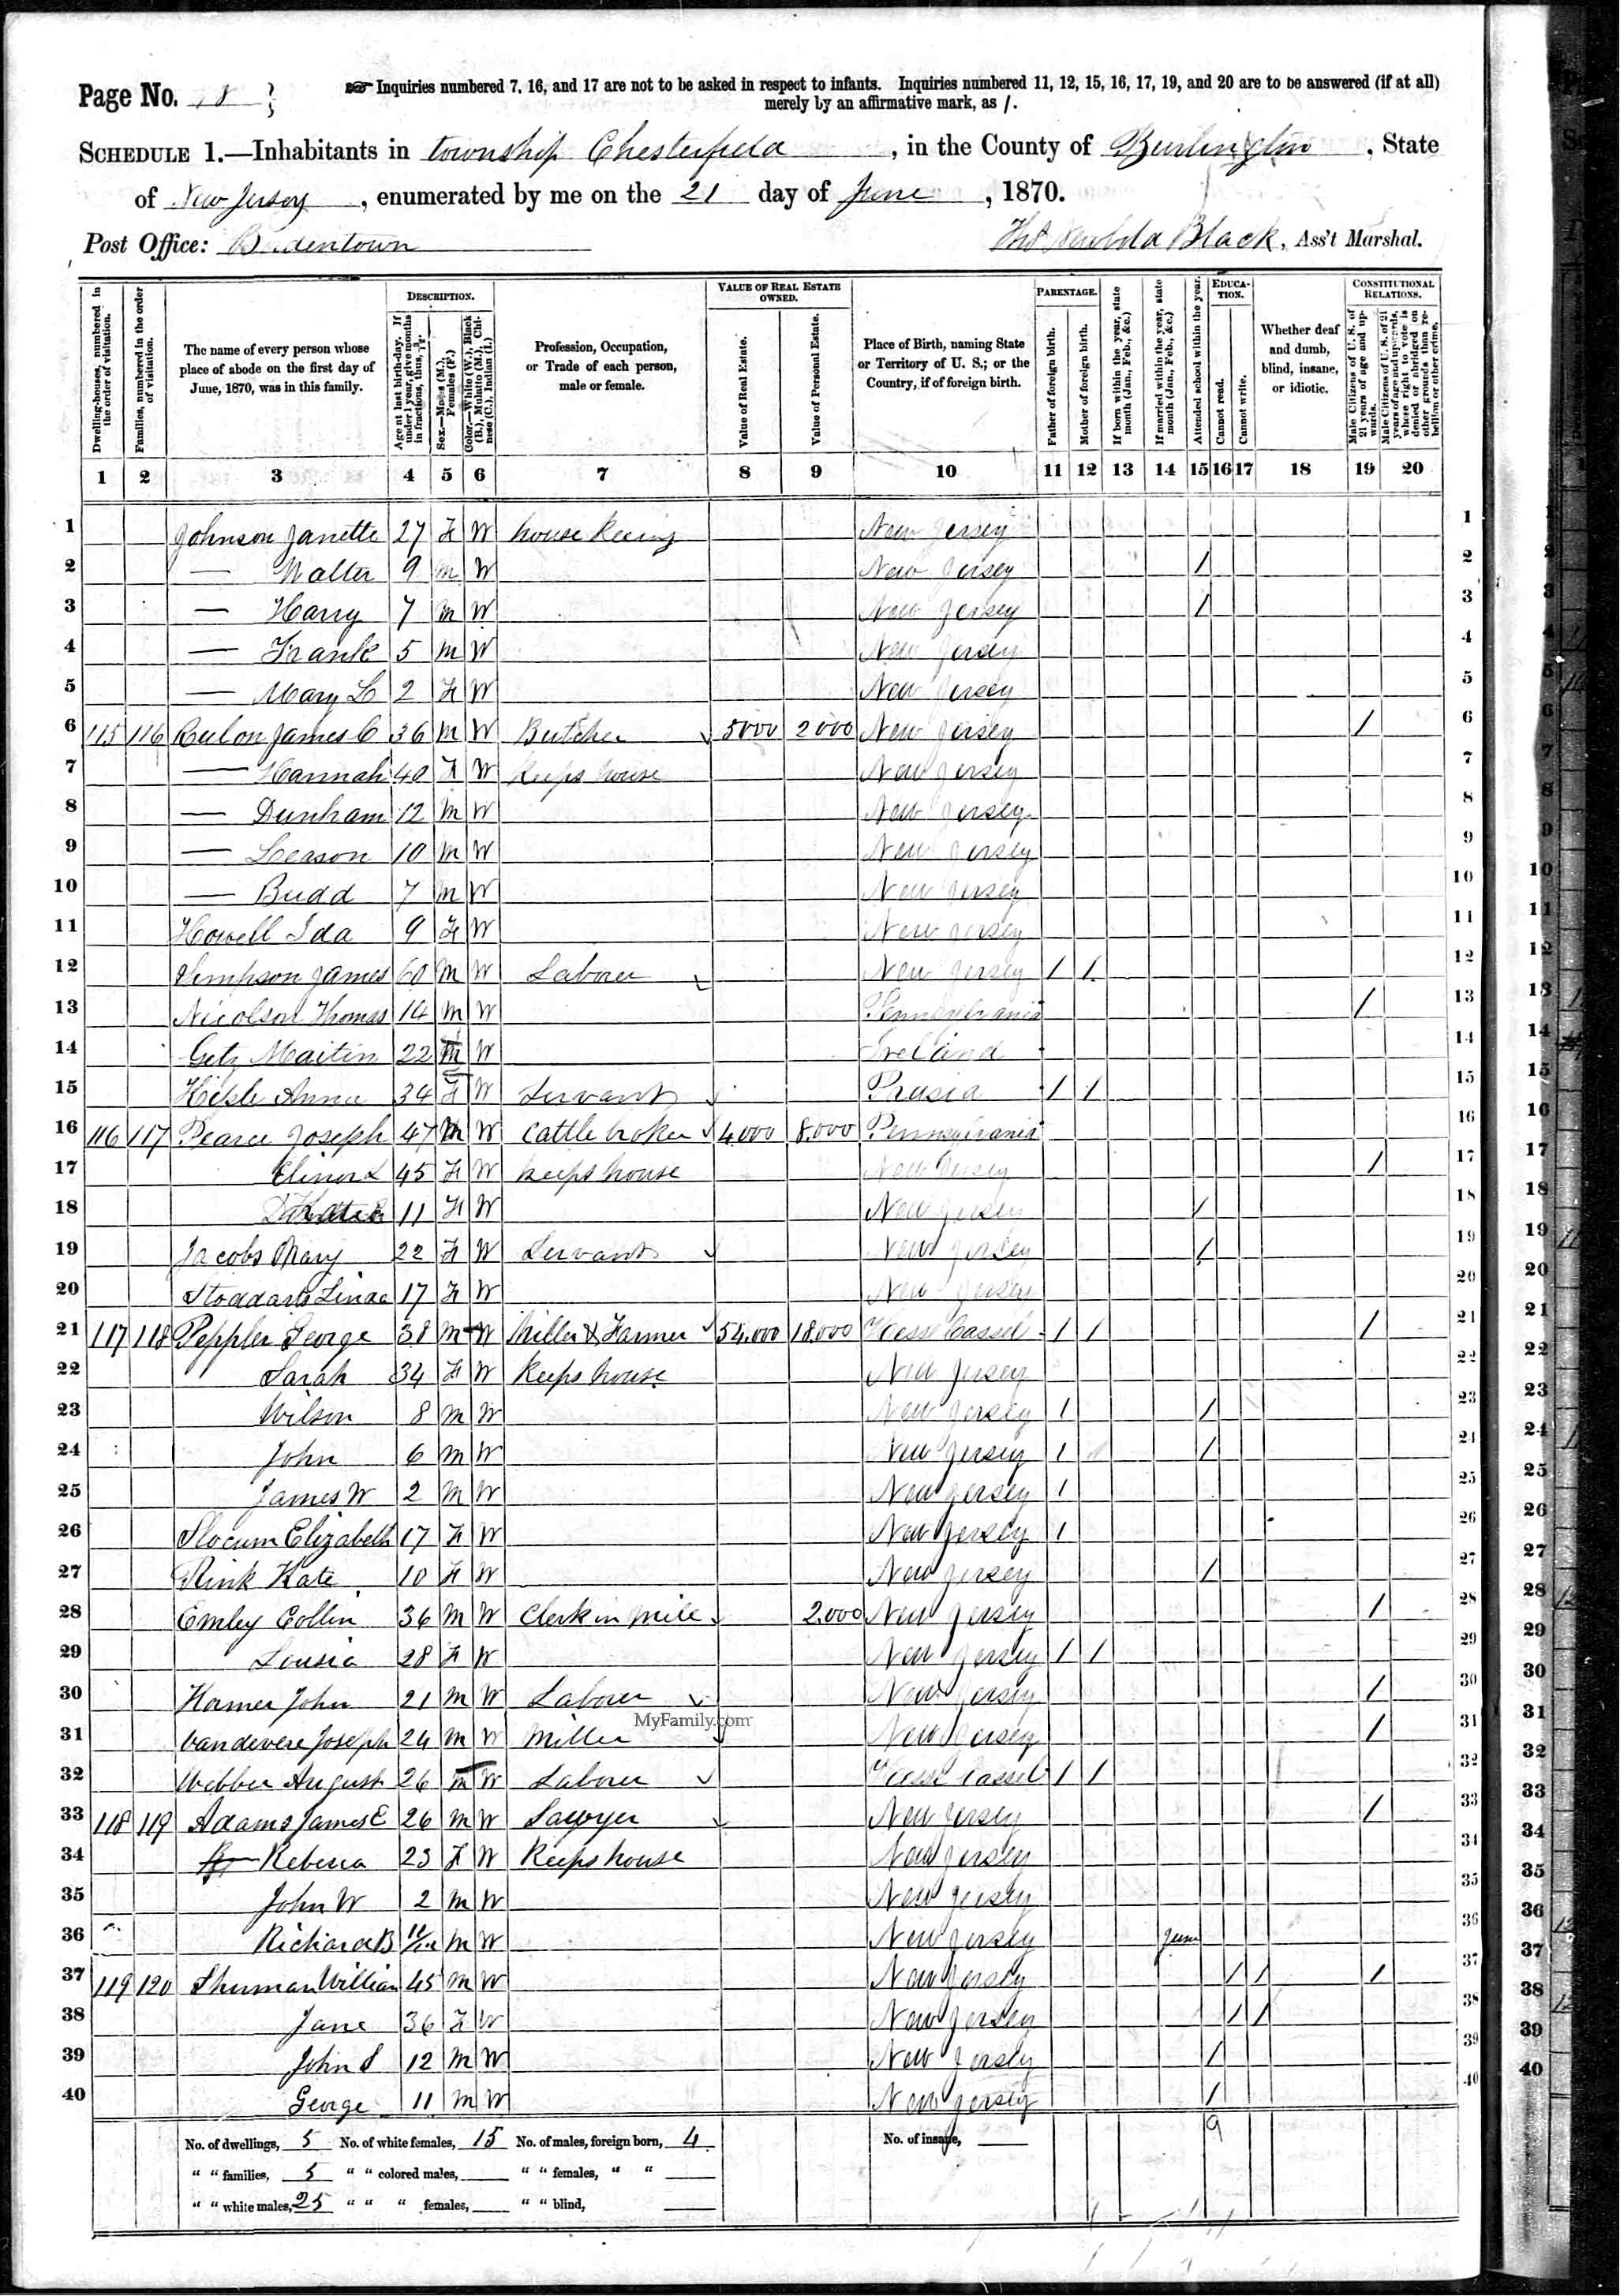 Page No. 18
Inquiries numbered 7, 16, and 17 are not to be asked in respect to infants. Inquiries numbered 11, 12, 15, 16, 17, 19, and 20 are to be answered (if at all)
merely by an affirmative mark, as /.
SCHEDULE 1.—Inhabitants in township Chesterfield, in the County of Burlington, State
of New Jersey, enumerated by me on the 21 day of June, 1870.
Post Office: Bordentown
Black, Ass't Marshal.
Dwelling-houses, numbered in the order of visitation.
Families, numbered in the order of visitation.
The name of every person whose place of abode on the first day of June, 1870, was in this family.
DESCRIPTION.
Age at last birth-day. If under 1 year, give months in fractions, thus, 3/12.
Sex.—Males (M.), Females (F.)
Color.—White (W.), Black (B.), Mulatto (M.), Chinese (C.), Indian (I.)
Profession, Occupation, or Trade of each person, male or female.
VALUE OF REAL ESTATE OWNED.
Value of Real Estate.
Value of Personal Estate.
Place of Birth, naming State or Territory of U. S.; or the Country, if of foreign birth.
PARENTAGE.
Father of foreign birth.
Mother of foreign birth.
If born within the year, state month (Jan., Feb., &c.)
If married within the year, state month (Jan., Feb., &c.)
Attended school within the year.
EDUCATION.
Cannot read.
Cannot write.
Whether deaf and dumb, blind, insane, or idiotic.
CONSTITUTIONAL RELATIONS.
Male Citizens of U. S. of 21 years of age and upwards.
Male Citizens of U. S. of 21 years of age and upwards, whose right to vote is denied or abridged on other grounds than rebellion or other crime.
1 2 3 4 5 6 7 8 9 10 11 12 13 14 15 16 17 18 19 20
1 Johnson Janette 27 F W house Keeing New Jersey 1
2 — Walter 9 M W New Jersey / 2
3 — Harry 7 M W New Jersey / 3
4 — Frank 5 M W New Jersey 4
5 — Mary L 2 F W New Jersey 5
6 115 116 James C 36 M W Butcher 5000 2000 New Jersey / 6
7 — Hannah 40 F W Keeps house New Jersey 7
8 — Dunham 12 M W New Jersey 8
9 — Leason 10 M W New Jersey 9
10 — Budd 7 M W New Jersey 10
11 Howell Ida 9 F W New Jersey 11
12 Simpson James 60 M W Laborer New Jersey / / 12
13 Nicolson Thomas 14 M W Pennsylvania / 13
14 Getz Martin 22 M W Ireland 14
15 Anna 34 F W Servant Prusia / / 15
16 116 117 Pearce Joseph 47 M W Cattle broker 4,000 8,000 Pennsylvania 16
17 Elinor L 45 F W keeps house New Jersey / 17
18 11 F W New Jersey / 18
19 Jacobs Mary 22 F W Servant New Jersey / 19
20 Linda 17 F W New Jersey 20
21 117 118 Peppler George 38 M W Miller & Farmer 54,000 18,000 Hesse Cassel / / / 21
22 Sarah 34 F W Keeps house New Jersey 22
23 Wilson 8 M W New Jersey / / 23
24 John 6 M W New Jersey / / 24
25 James W 2 M W New Jersey / 25
26 Slocum Elizabeth 17 F W New Jersey / 26
27 Rink Kate 10 F W New Jersey / 27
28 Emley Collin 36 M W Clerk in Mill 2,000 New Jersey / 28
29 Lousia 28 F W New Jersey / / 29
30 Hamer John 21 M W Laborer New Jersey / 30
31 Vandevere Joseph 24 M W Miller New Jersey / 31
MyFamily.com
32 Webber August 26 M W Laborer Hesse Cassel / / 32
33 118 119 Adams James E 26 M W Sawyer New Jersey / 33
34 Rebecca 23 F W Keeps house New Jersey 34
35 John W 2 M W New Jersey 35
36 Richard B 11/12 M W New Jersey June 36
37 119 120 Shuman William 45 M W New Jersey / / / 37
38 Jane 36 F W New Jersey / / 38
39 John S 12 M W New Jersey / 39
40 George 11 M W New Jersey / 40
No. of dwellings, 5 No. of white females, 15 No. of males, foreign born, 4 No. of insane, 9
" " families, 5 " " colored males, " " females, " "
" " white males, 25 " " " females, " " blind,